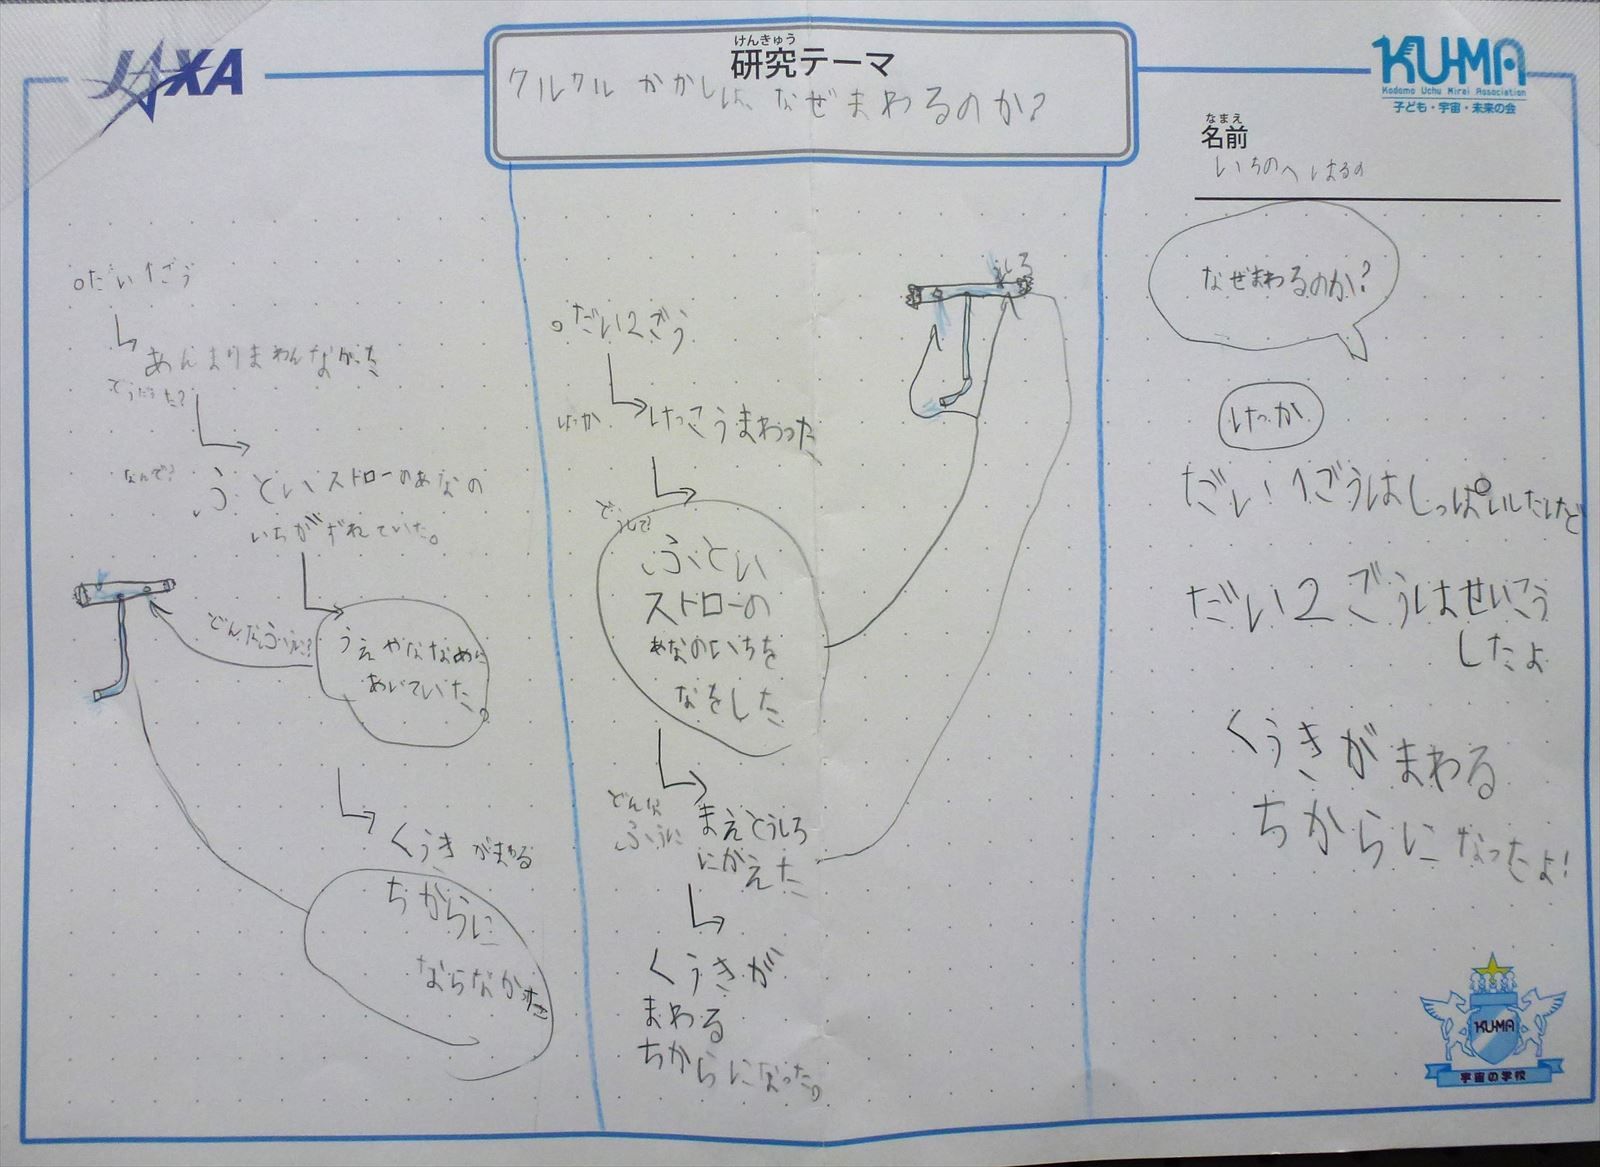 JAXA
けんきゅう
研究テーマ
クルクルかかしは、なぜまわるのか?
KU-MA
Kodomo Uchu Mirai Association
子ども・宇宙・未来の会
なまえ
名前
いちのへ はるの
○だい1ごう
あんまりまわんなかった
どうだった?
なんで?
ふといストローのあなの
いちがずれていた。
どんなふうに?
うえやななめに
あいていた。
くうきがまわる
ちからに
ならなかった
○だい2ごう
けっか
けっこうまわった
どうして?
ふとい
ストローの
あなのいちを
なをした
どんな
ふうに
まえとうしろ
にかえた
くうきが
まわる
ちからになった。
うしろ
なぜまわるのか?
けっか
だい1ごうはしっぱいしたけど
だい2ごうはせいこう
したよ
くうきがまわる
ちからになったよ!
KU-MA
宇宙の学校